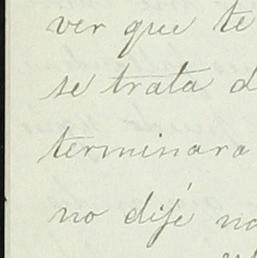 ver que te
se trata d
terminara
no dijé na